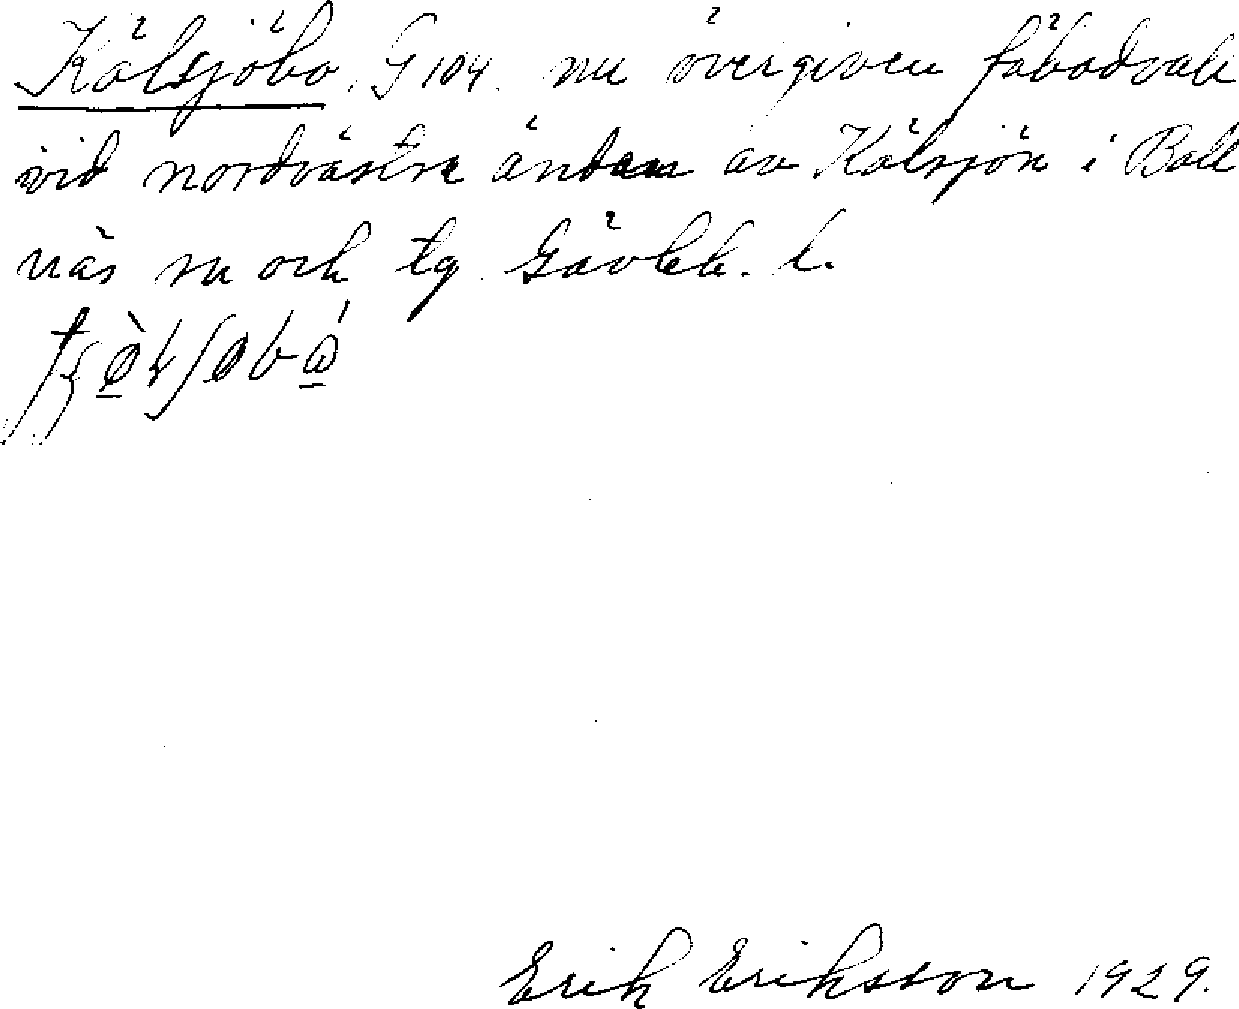 Kälsjöbo, G 104. nu övergiven fäbodvall
vid nordvästra ändan av Kälsjön i Boll
näs sn och tg. Gävleb. l.
Erik Eriksson 1929.